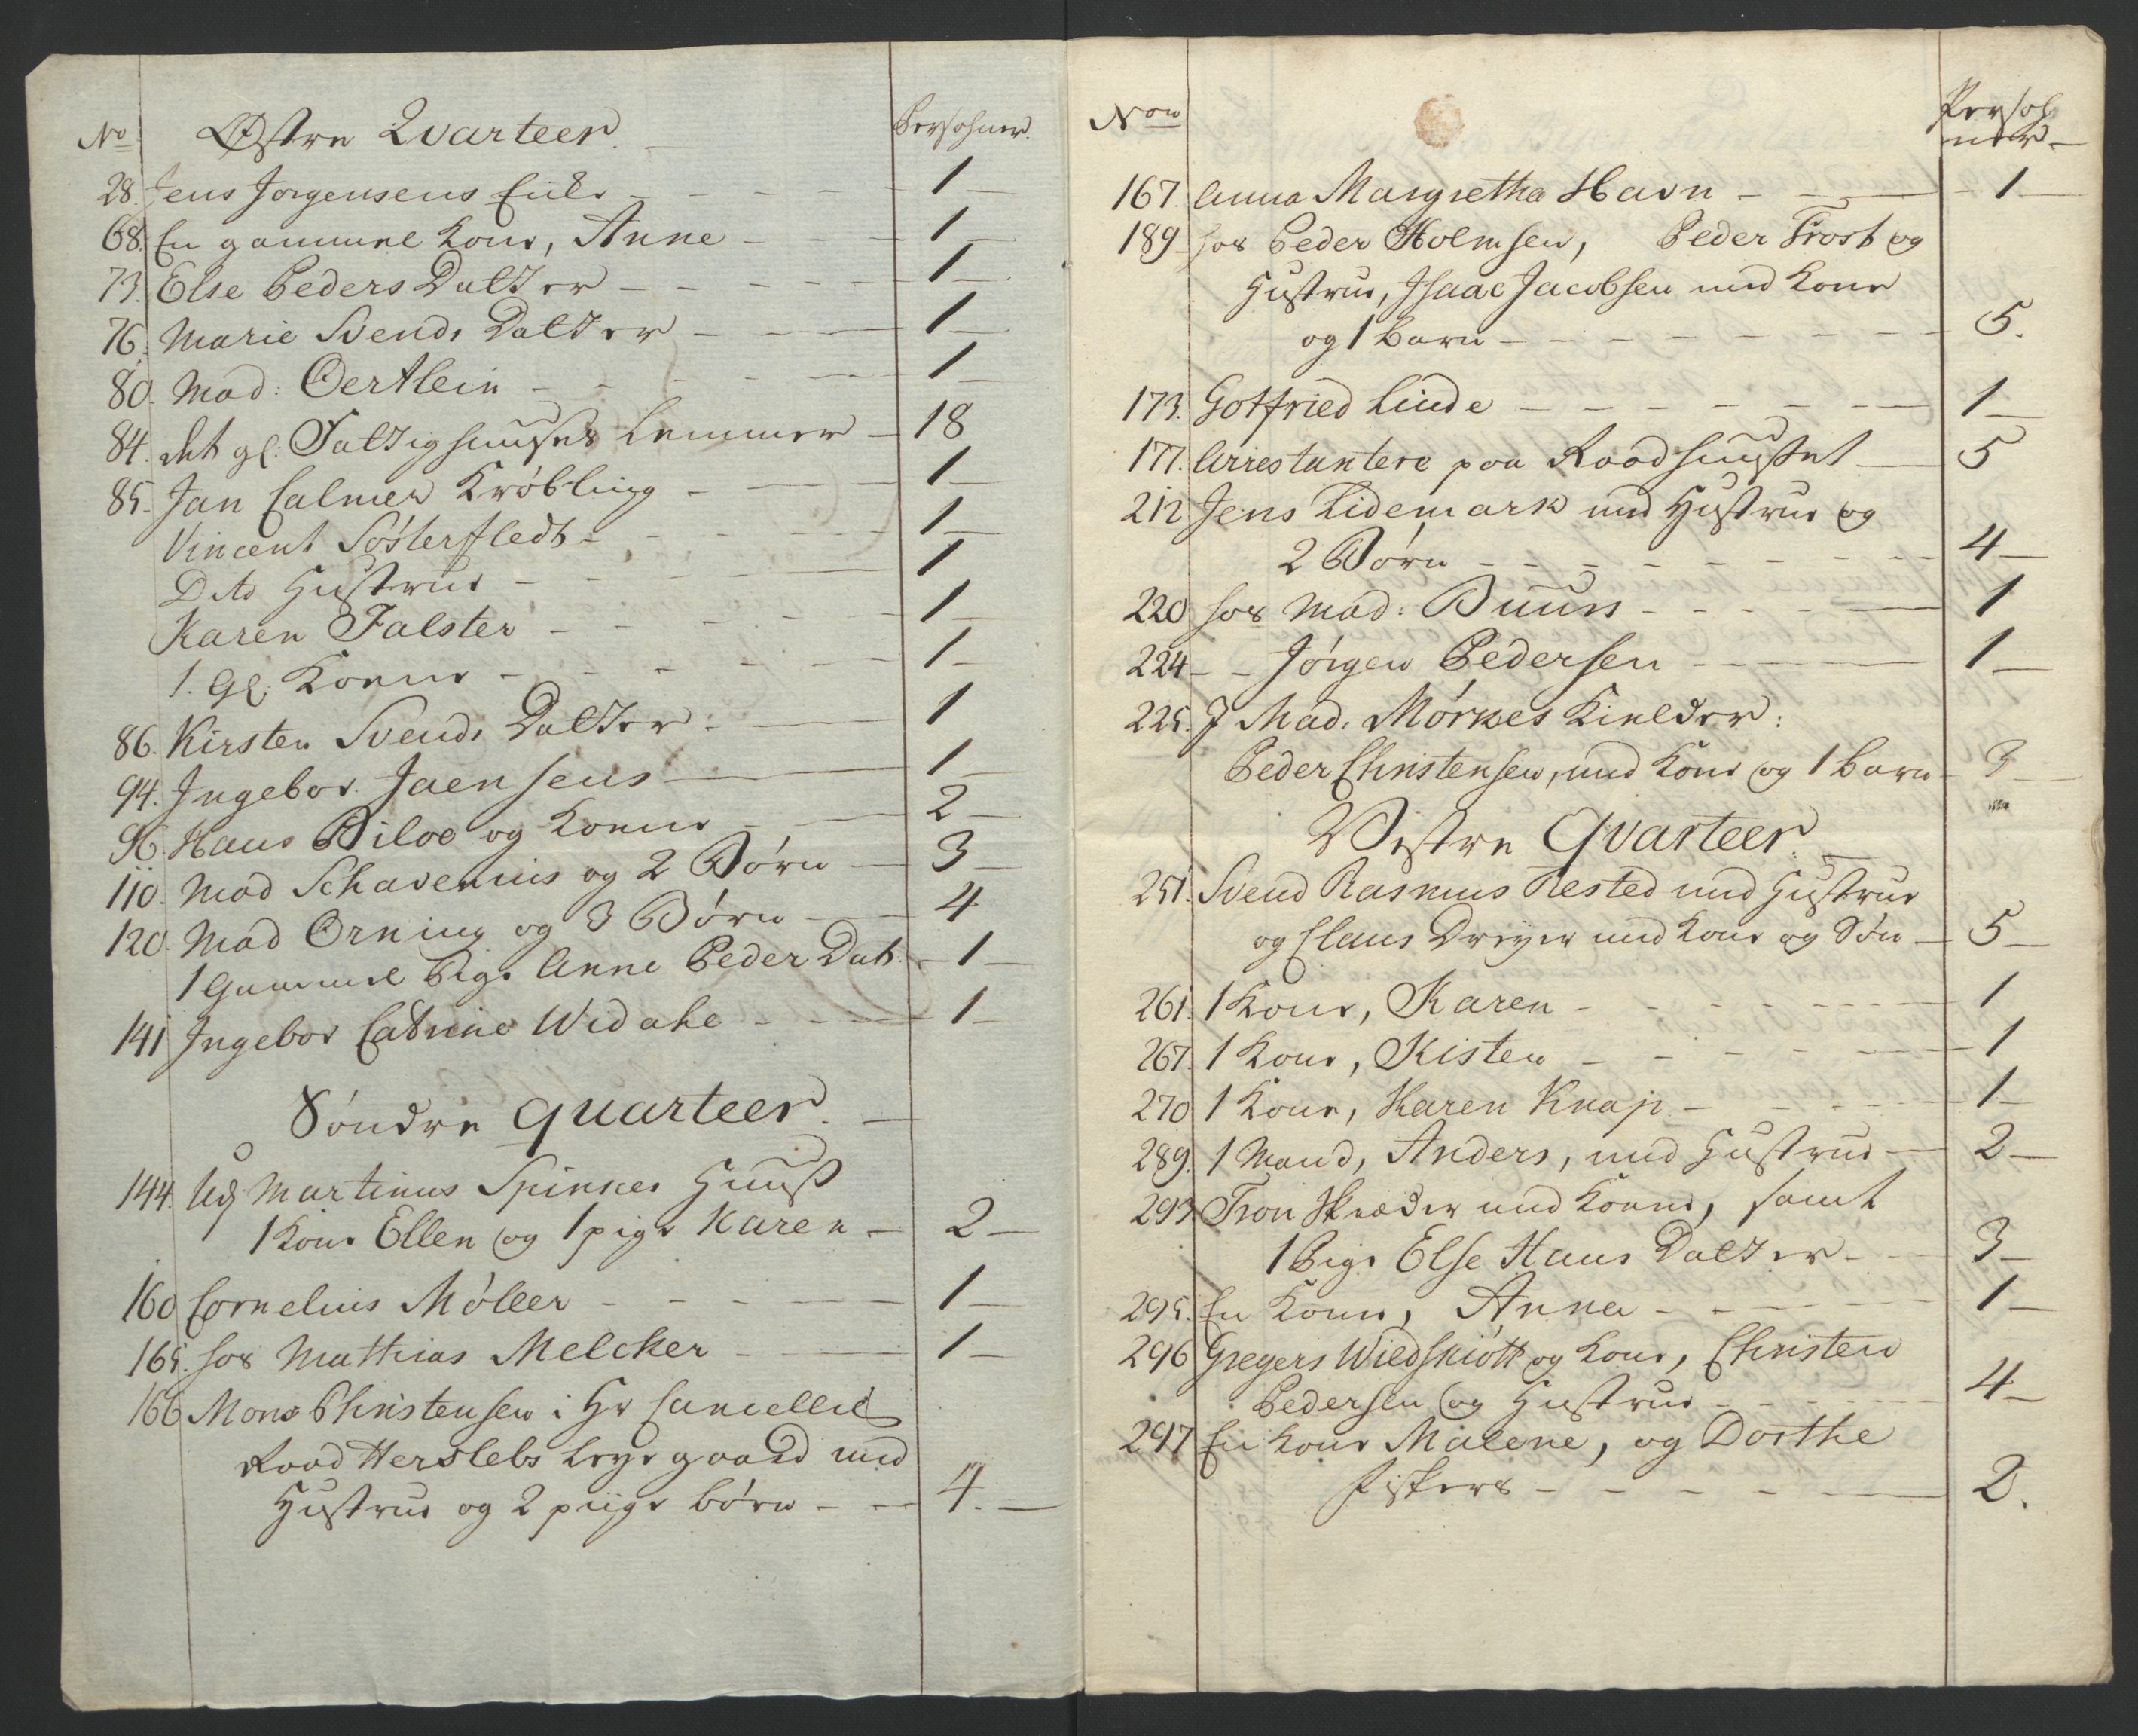 No Østre Qvarteer. Persohner.
28. Jens Jörgensens Enke 1
68. En gammel Kone, Anne 1
73. Else Peders Datter 1
76. Marie Svends Datter 1
80. Mad: Oertlein 1
84. det gl: Fattighuuses Lemmer 18
85. Jan Calmer Krøbling 1
Vincent Sösterfledt 1
Dito Hustrue 1
Karen Falster 1
1. Gl: Konne 1
86. Kirsten Svends Datter 1
94. Ingebor Jaensens 1
96. Hans Biloe og Konne 2
110. Mad Schavenius og 2 Børn 3
120. Mad Orning og 3 Børn 4
1 Gammel Pige Anne Peder Dat. 1
141 Ingebor Catrine Widahe 1
Søndre Quarteer.
144. Udj Martinus Spinkes Huus
1 Kone Ellen og 1 pige Karen 2
160 Cornelius Möller 1
165. hos Mathias Melcker 1
166 Mons Christensen i Hr Cancellie
Raad Herslebs Leye gaard med
Hustrue og 2 piige børn 4.
Non Persohner
167. Anna Margretha Havn 1
189 hos Peder Holmsen, Peder Frost og
Hustrue, Isaac Jacobsen med Kone
og 1 Barn 5.
173. Gotfried Linde 1
177. Arrestantere paa Raadhuuset 5
212 Jens Lidemark med Hustrue og
2 Børn 4
220 hos Mad: Buuss 1
224 - - Jörgen Pedersen 1
225. I Mad. Mörkes Kielder:
Peder Christensen, med Kone og 1 Barn 3
Vestre Qvarteer.
251. Svend Rasmus Rested med Hustrue
og Claus Dreyer med Kone og Søn 5
261. 1 Kone, Karen 1
267. 1 Kone, Kisten 1
270 1 Kone, Karen Knap 1
289. 1 Mand, Anders, med Hustrue 2
293 Tron Skræder med Konne, samt
1 Pige Else Hans Datter 3
295. En Konne, Anna 1
296 Gregers Wiedskiött og Kone, Christen
Pedersen og Hustrue 4
297 En Kone Malene, og Dorthe
Fiskers 2.